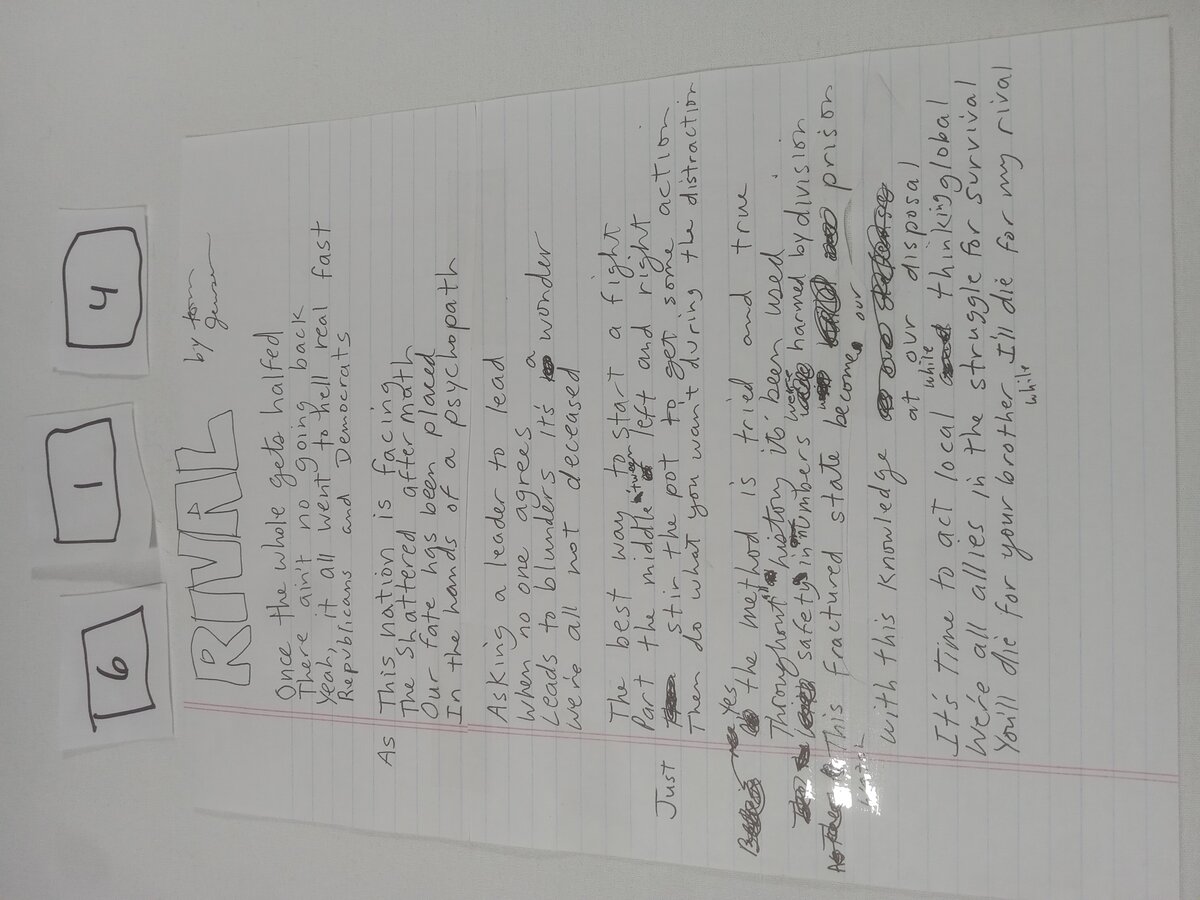 6 1 4
RIVAL by tom
Once the whole gets halfed
There ain't no going back
Yeah, it all went to hell real fast
Republicans and Democrats
As This nation is facing
The shattered aftermath
Our fate has been placed
In the hands of a psychopath
Asking a leader to lead
When no one agrees
Leads to blunders it's a wonder
We're all not deceased
The best way to start a fight
Part the middle 'tween left and right
Just stir the pot to get some action
Then do what you want during the distraction
Yes the method is tried and true
Throughout history it's been used
safety in numbers were harmed by division
This fractured state becomes our prison
with this knowledge at our disposal
It's time to act local while thinking global
We're all allies in the struggle for survival
You'll die for your brother while I'll die for my rival